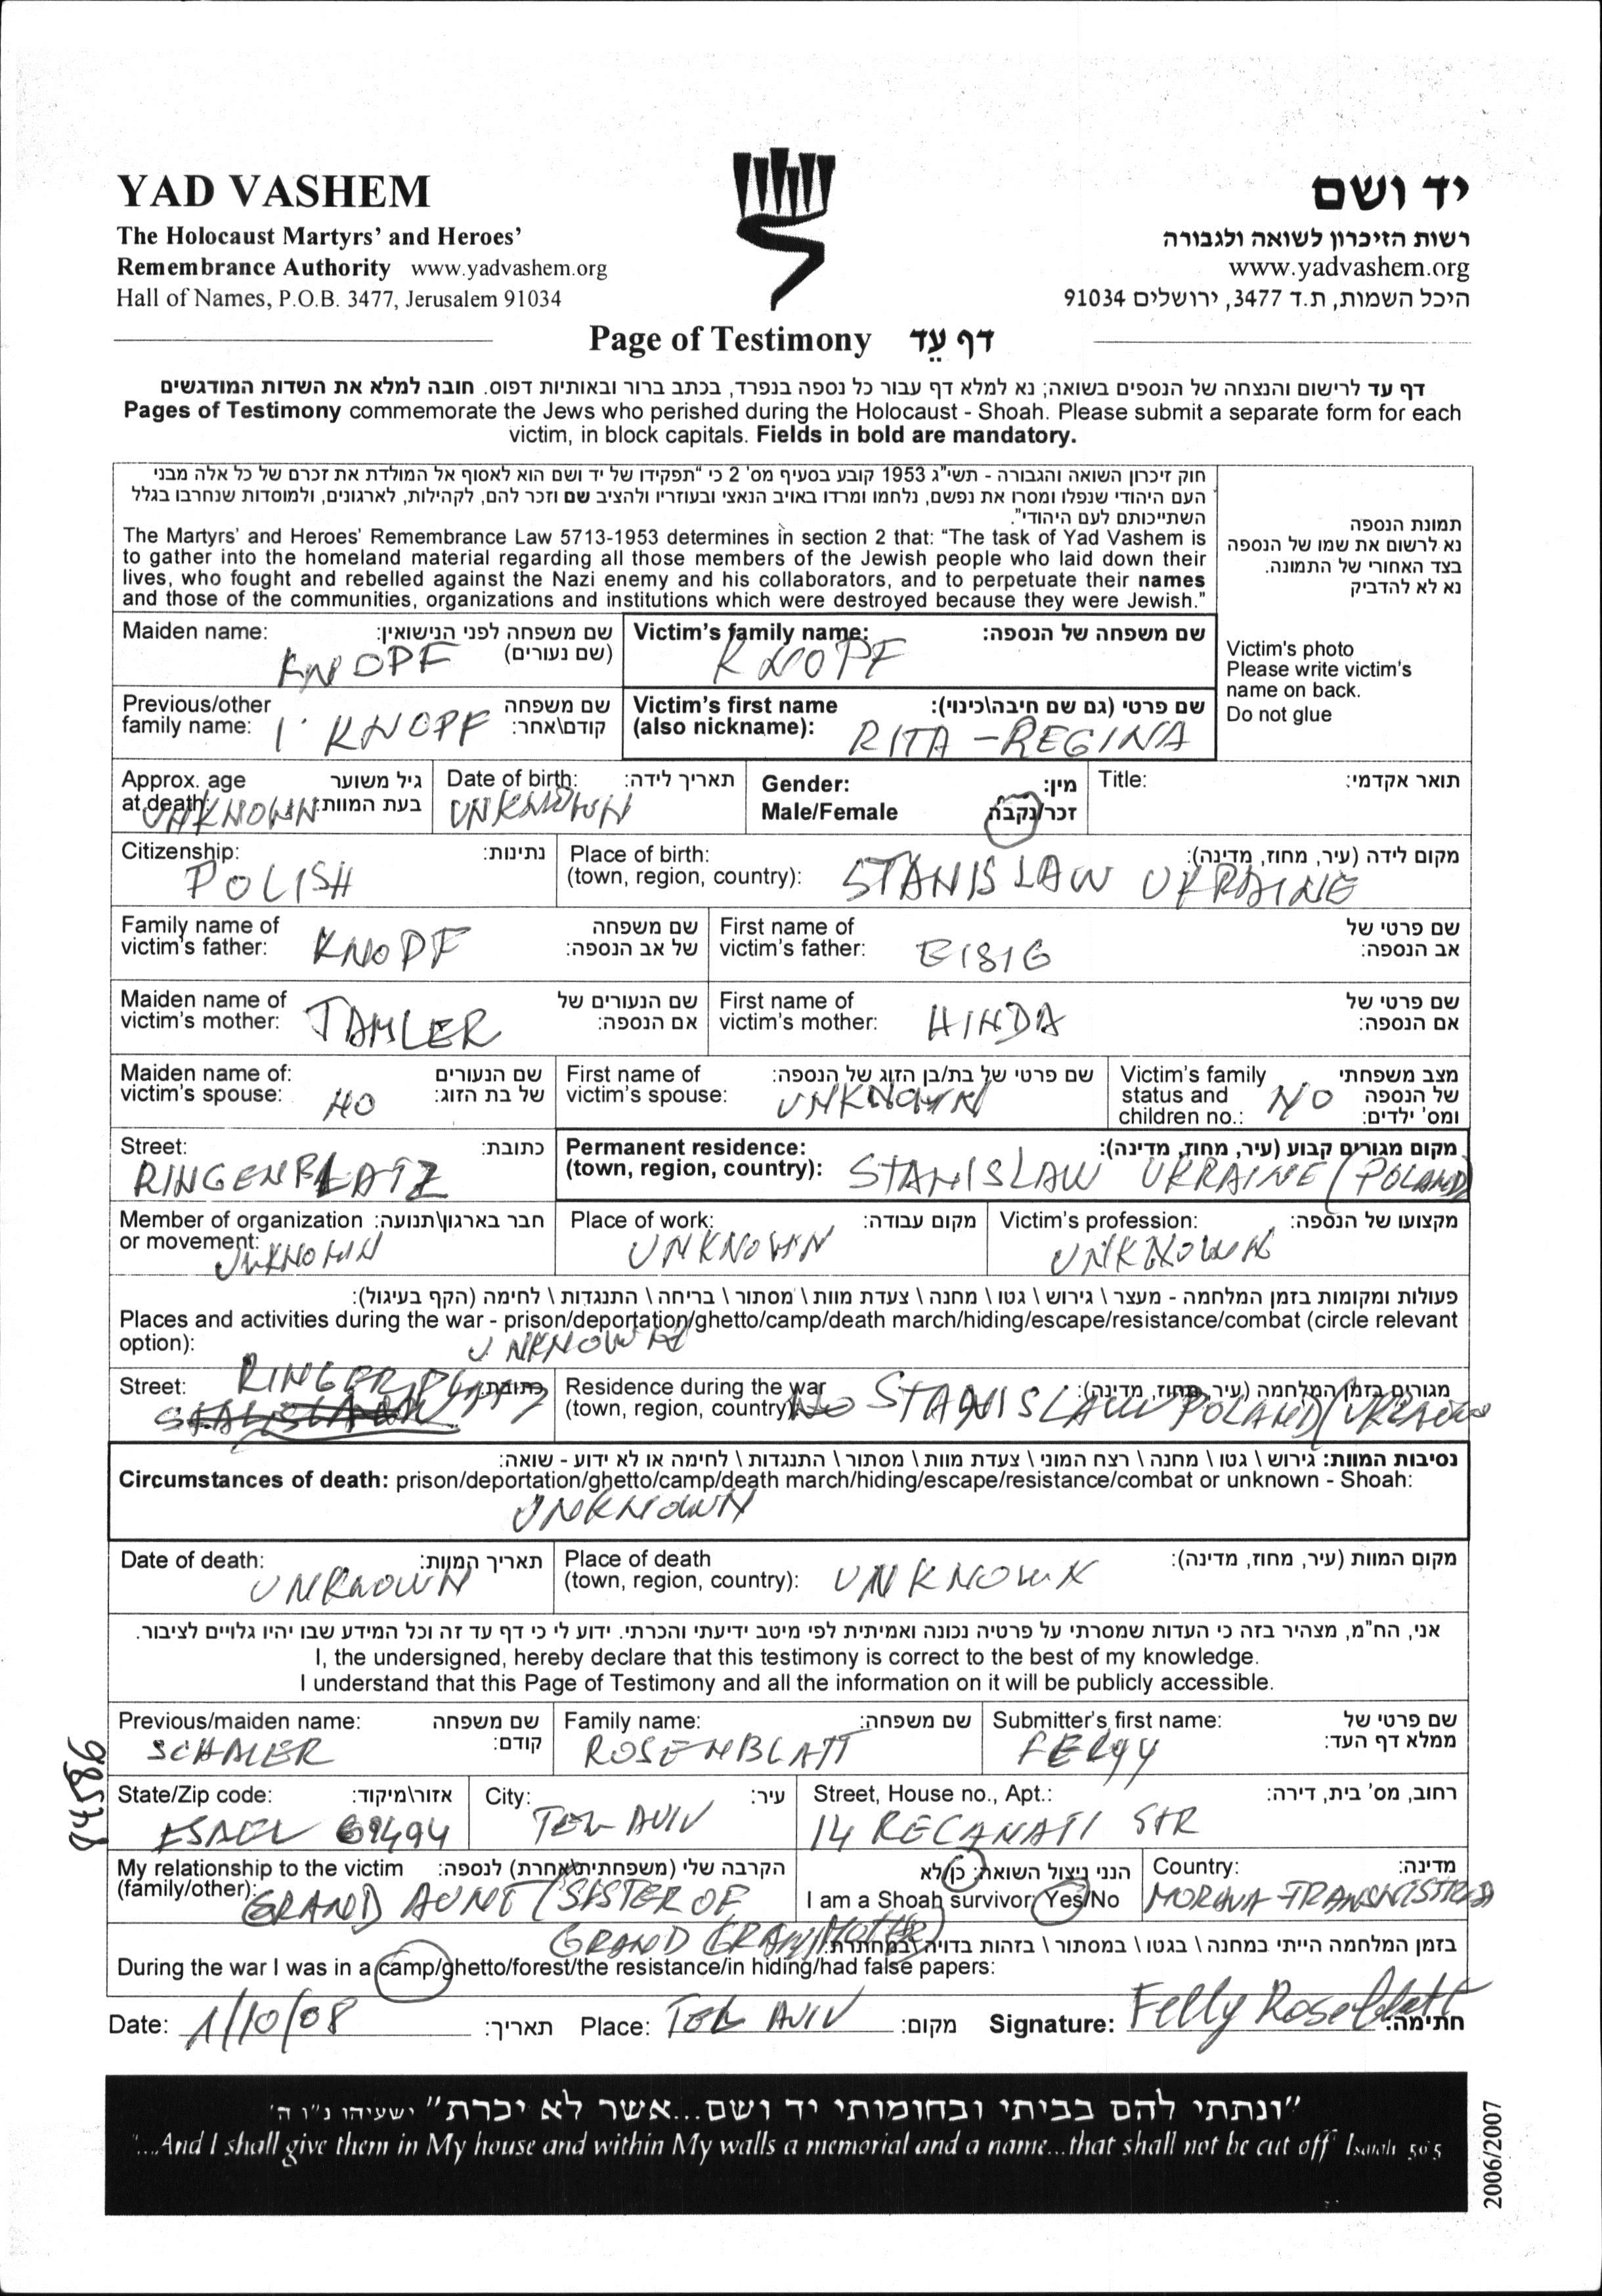 YAD VASHEM
The Holocaust Martyrs' and Heroes'
Remembrance Authority www.yadvashem.org
Hall of Names, P.O.B. 3477, Jerusalem 91034
יד ושם
רשות הזיכרון לשואה ולגבורה
www.yadvashem.org
היכל השמות, ת.ד 3477, ירושלים 91034
Page of Testimony דף עֵד
דף עד לרישום והנצחה של הנספים בשואה; נא למלא דף עבור כל נספה בנפרד, בכתב ברור ובאותיות דפוס. חובה למלא את השדות המודגשים
Pages of Testimony commemorate the Jews who perished during the Holocaust - Shoah. Please submit a separate form for each
victim, in block capitals. Fields in bold are mandatory.
חוק זיכרון השואה והגבורה - תשי"ג 1953 קובע בסעיף מס' 2 כי "תפקידו של יד ושם הוא לאסוף אל המולדת את זכרם של כל אלה מבני
העם היהודי שנפלו ומסרו את נפשם, נלחמו ומרדו באויב הנאצי ובעוזריו ולהציב שם וזכר להם, לקהילות, לארגונים, ולמוסדות שנחרבו בגלל
השתייכותם לעם היהודי".
The Martyrs' and Heroes' Remembrance Law 5713-1953 determines in section 2 that: "The task of Yad Vashem is
to gather into the homeland material regarding all those members of the Jewish people who laid down their
lives, who fought and rebelled against the Nazi enemy and his collaborators, and to perpetuate their names
and those of the communities, organizations and institutions which were destroyed because they were Jewish."
תמונת הנספה
נא לרשום את שמו של הנספה
בצד האחורי של התמונה.
נא לא להדביק
Victim's photo
Please write victim's
name on back.
Do not glue
Maiden name: שם משפחה לפני הנישואין:
(שם נעורים)
KNOPF
Victim's family name: שם משפחה של הנספה:
KNOPF
Previous/other שם משפחה
family name: KNOPF קודם\אחר:
Victim's first name שם פרטי (גם שם חיבה\כינוי):
(also nickname): RITA - REGINA
Approx. age גיל משוער
at death: UNKNOWN בעת המוות:
Date of birth: תאריך לידה:
UNKNOWN
Gender: מין:
Male/Female זכר/נקבה
Title: תואר אקדמי:
Citizenship: נתינות:
POLISH
Place of birth: מקום לידה (עיר, מחוז, מדינה):
(town, region, country): STANISLAW UKRAINE
Family name of שם משפחה
victim's father: KNOPF של אב הנספה:
First name of שם פרטי של
victim's father: EISIG אב הנספה:
Maiden name of שם הנעורים של
victim's mother: TAMLER אם הנספה:
First name of שם פרטי של
victim's mother: HINDA אם הנספה:
Maiden name of: שם הנעורים
victim's spouse: NO של בת הזוג:
First name of שם פרטי של בת/בן הזוג של הנספה:
victim's spouse: UNKNOWN
Victim's family מצב משפחתי
status and של הנספה
children no.: NO ומס' ילדים:
Street: כתובת:
RINGENPLATZ
Permanent residence: מקום מגורים קבוע (עיר, מחוז, מדינה):
(town, region, country): STANISLAW UKRAINE (POLAND)
Member of organization חבר בארגון\תנועה:
or movement: UNKNOWN
Place of work: מקום עבודה:
UNKNOWN
Victim's profession: מקצועו של הנספה:
UNKNOWN
פעולות ומקומות בזמן המלחמה - מעצר \ גירוש \ גטו \ מחנה \ צעדת מוות \ מסתור \ בריחה \ התנגדות \ לחימה (הקף בעיגול):
Places and activities during the war - prison/deportation/ghetto/camp/death march/hiding/escape/resistance/combat (circle relevant
option): UNKNOWN
Street: כתובת:
Residence during the war מגורים בזמן המלחמה (עיר, מחוז, מדינה):
(town, region, country) STANISLAW POLAND (UKRAINE
נסיבות המוות: גירוש \ גטו \ מחנה \ רצח המוני \ צעדת מוות \ מסתור \ התנגדות \ לחימה או לא ידוע - שואה:
Circumstances of death: prison/deportation/ghetto/camp/death march/hiding/escape/resistance/combat or unknown - Shoah:
UNKNOWN
Date of death: תאריך המוות:
UNKNOWN
Place of death מקום המוות (עיר, מחוז, מדינה):
(town, region, country): UNKNOWN
אני, הח"מ, מצהיר בזה כי העדות שמסרתי על פרטיה נכונה ואמיתית לפי מיטב ידיעתי והכרתי. ידוע לי כי דף עד זה וכל המידע שבו יהיו גלויים לציבור.
I, the undersigned, hereby declare that this testimony is correct to the best of my knowledge.
I understand that this Page of Testimony and all the information on it will be publicly accessible.
Previous/maiden name: שם משפחה
קודם:
Family name: שם משפחה:
ROSENBLATT
Submitter's first name: שם פרטי של
ממלא דף העד:
State/Zip code: אזור\מיקוד:
69494
City: עיר:
TEL AVIV
Street, House no., Apt.: רחוב, מס' בית, דירה:
14 RECANATI STR
My relationship to the victim הקרבה שלי (משפחתית\אחרת) לנספה:
(family/other): GRAND AUNT (SISTER OF
GRAND GRANDMOTHER)
הנני ניצול השואה: כן/לא
I am a Shoah survivor: Yes/No
Country: מדינה:
בזמן המלחמה הייתי במחנה \ בגטו \ במסתור \ בזהות בדויה \ במחתרת:
During the war I was in a camp/ghetto/forest/the resistance/in hiding/had false papers:
Date: 1/10/08 תאריך: Place: TEL AVIV מקום: Signature: Felly Rosenblatt חתימה:
84586
"ונתתי להם בביתי ובחומותי יד ושם...אשר לא יכרת" ישעיהו נ"ו ה'
"...And I shall give them in My house and within My walls a memorial and a name...that shall not be cut off" Isaiah 56:5
2006/2007